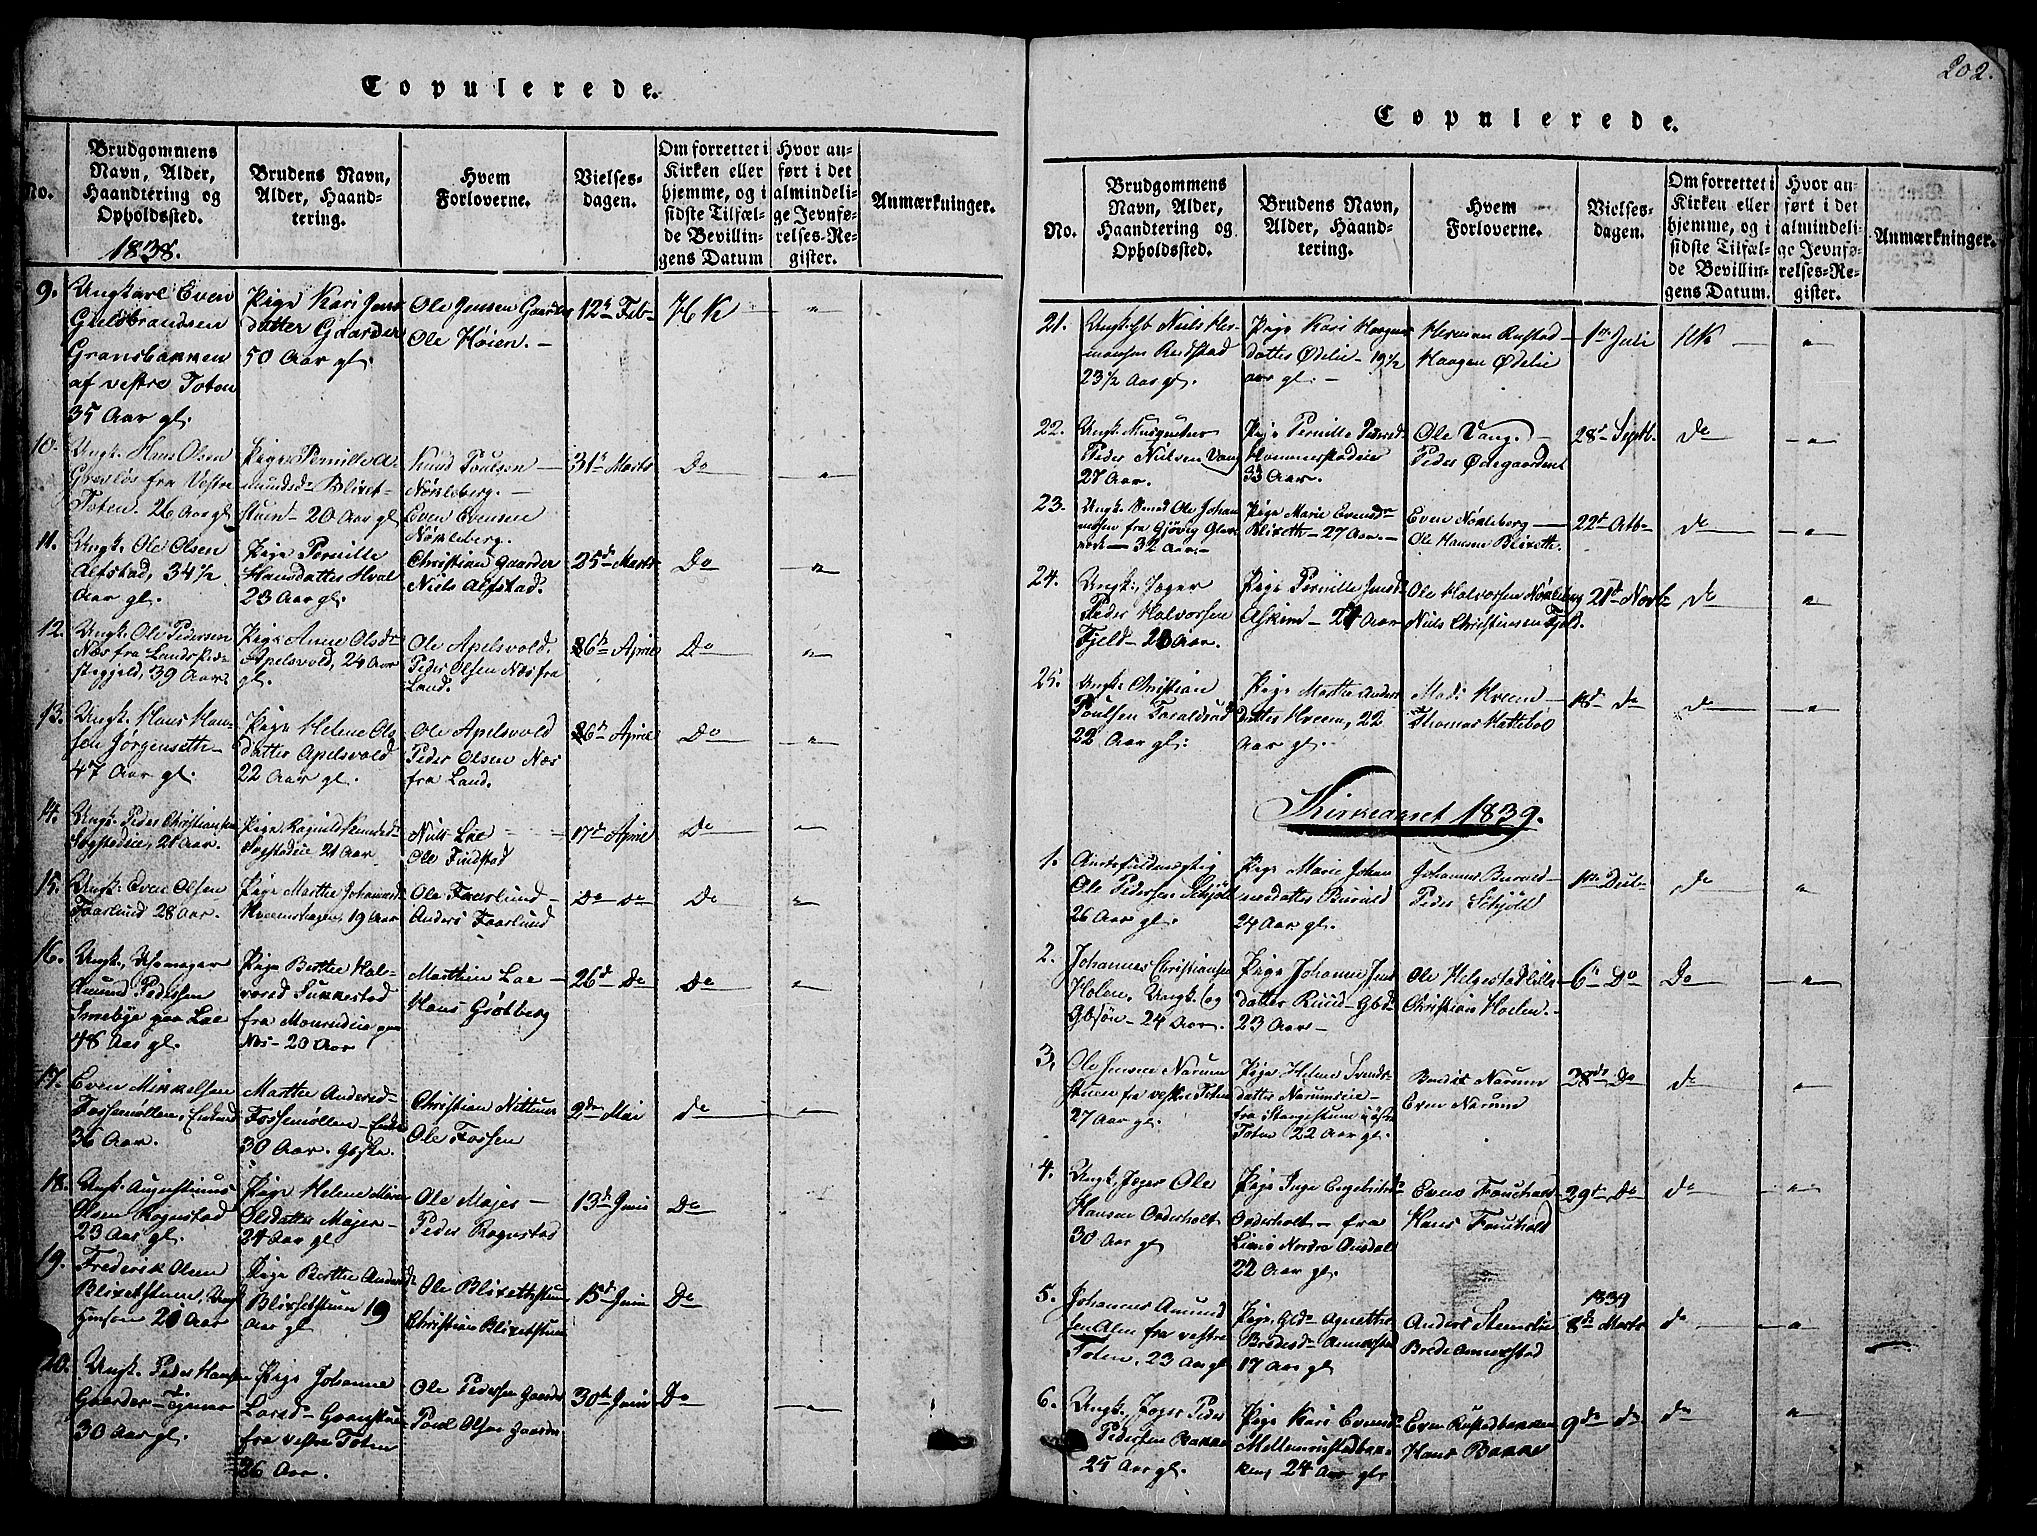 202.
Copulerede.
No.
Brudgommens
Navn, Alder,
Haandtering og
Opholdssted.
1838.
Brudens Navn,
Alder, Haand-
tering.
Hvem
Forloverne.
Vielses-
dagen.
Om forrettet i
Kirken eller
hjemme, og i
sidste Tilfæl-
de Bevillin-
gens Datum
Hvor an-
ført i det
almindeli-
ge Jevnfø-
relses-Re-
gister.
Anmærkninger.
9. Ungkarl Even
Guldbrandsen
Gransbakken
af vestre Toten
35 Aar gl.
Pige Kari Jens
datter Gaarder
50 Aar gl.
Ole Jensen Gaarder
Ole Høien.
12te Feb
H K
10. Ungk. Hans Olsen
fra Vestre
Toten. 26 Aar gl
Pige Pernille A-
mundsd. Blixet-
stuen 20 Aar gl
Knud Poulsen
Nøkleberg.
Even Evensen
Nøkleberg.
31te Marts
Do
11. Ungk. Ole Olsen
Alfstad, 34 1/2
Aar gl.
Pige Pernille
Hansdatter Hval
23 Aar gl.
Christian Gaarder
Niels Alfstad.
25de Marts
Do
12. Ungk. Ole Pedersen
Næs fra Lands Præ-
stegjeld, 39 Aar.
Pige Anne Olsdr
Apelsvold, 24 Aar
gl.
Ole Apelsvold.
Peder Olsen Næs fra
Land.
26de April
Do
13. Ungk. Hans Han-
sen Jørgensette
47 Aar gl.
Pige Helene Ols
datter Apelsvold
22 Aar gl.
Ole Apelsvold
Peder Olsen Næs
fra Land.
26de April
Do
14. Ungk. Peder Christiansen
Sogstadeie, 21 Aar.
Pige Ragnild
Sogstadeie 21 Aar
Niels Lae
Ole Findstad
17de April
Do
15. Ungk. Even Olsen
Faarlund 28 Aar.
Pige Marthe Johannesd
Kveemshagen, 19 Aar
Ole Faarlund
Anders Faarlund
Do Do
Do
16. Ungk.
Amund Pedersen
Smebye paa Lae
48 Aar gl.
Pige Berthe Hal-
vorsd Sukkestad
fra
Næs 20 Aar
Marthin Lae
Hans Grøtberg
26de Do
Do
17. Even Mikkelsen
Fossemøllen, Enkem
36 Aar.
Marthe Andersd
Fossemøllen Enke
30 Aar.
Christian Nettum
Ole Fossen
2den Mai
do
18. Ungk. Augustinus
Olsen Rognstad
23 Aar gl.
Pige Helene Marie
Olsdatter Majer
24 Aar gl
Ole Majer
Peder Rognstad
13de Juni
Do
19. Frederik Olsen
Blixetstuen, Ungk
20 Aar
Pige Berthe Andersd
Blixetstuen 19
Aar gl
Ole Blixethstuen
Christian Blixetstuen
15de Juni
Do
20. Ungk. Peder Hansen
Gaarder
30 Aar gl.
Pige Johanne
Larsd Granstuen
fra vestre Toten
26 Aar.
Ole Pedersen Gaarder
Poul Olsen Gaarder
30te Juni
Do
Copulerede.
No.
Brudgommens
Navn, Alder,
Haandtering og
Opholdssted.
Brudens Navn,
Alder, Haand-
tering.
Hvem
Forloverne.
Vielses-
dagen.
Om forrettet i
Kirken eller
hjemme, og i
sidste Tilfæl-
de Bevillin-
gens Datum.
Hvor an-
ført i det
almindeli-
ge Jevnfø-
relses-Re-
gister.
Anmærkninger.
21. Niels Her-
mansen Rudstad
23 1/2 Aar gl.
Pige Kari Haagens
datter Ødelie 19 1/2
aar gl.
Herman Rustad
Haagen Ødelie
1ste Juli
HK
22. Ungk.
Peder Nielsen Vang
27 Aar.
Pige Pernille Pedersd
Hommerstadeie
33 Aar.
Ole Vang.
Peder Ødegaarden
28de Septb.
do
23. Ungk. Ole Johan
nesen fra Gjøvig
32 Aar.
Pige Marie Evensdr
Blixeth 27 Aar.
Even Nøkleberg
Ole Hansen Blixeth.
22de Octb
do
24. Ungk., Jæger
Peder Halvorsen
Fjeld 28 Aar.
Pige Pernille Jensd
Askim 24 Aar
Ole Halvorsen Nøkleberg
Niels Christiansen Fjeld.
21de Novb
do
25. Ungk. Christian
Poulsen
22 Aar gl:
Pige Marthe Anders
datter Kveem, 22
Aar gl.
Mads Kveem
Thomas Hattebøl
18de do
do
Kirkeaaret 1839.
1.
Ole Pedersen Schjøll
26 Aar gl.
Pige Marie Johan
nesdatter Buruld
24 Aar gl.
Johannes Buruld
Peder Schjøll
1ste Decb
do
2. Johannes Christiansen
Holen. Ungk. og
Gbsøn 24 Aar.
Pige Johanne Jens
datter Ruud Gbd
23 Aar
Ole Helgestad
Christian Hoelen.
6te Do
Do
3. Ole Jensen Narum
stuen fra vestre Toten
27 Aar gl.
Pige Helene Svends
datter Narumseie
fra Stangestuen i østre
Toten 22 Aar gl.
Bendix Narum
Even Narum
28de Do
do
4. Ungk. Jæger Ole
Hansen Onderholt
30 Aar gl
Pige Inge Engebrets
Onderholt fra
Nordre Ousdal
22 Aar gl.
Even Fouchald
Hans Fouchald
29de Do
do
5. Johannes Amund
sen Alm fra vestre
Toten. 23 Aar gl
Pige, Agnethe
Bredesd Annexstad
17 Aar gl
Anders Steensbie
Brede Annexstad
1839
8de Marts
do
6. Ungk. Jæger Peder
Pedersen Bakke
25 Aar gl.
Pige Kari Evensd
Mellemrustadbak-
ken, 24 Aar gl.
Even Rustadbakken
Hans Bakke
9de do
do